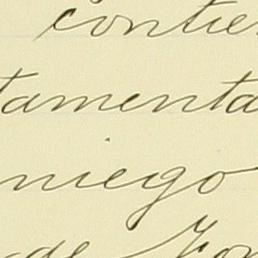 contie
tamenta
niego
de